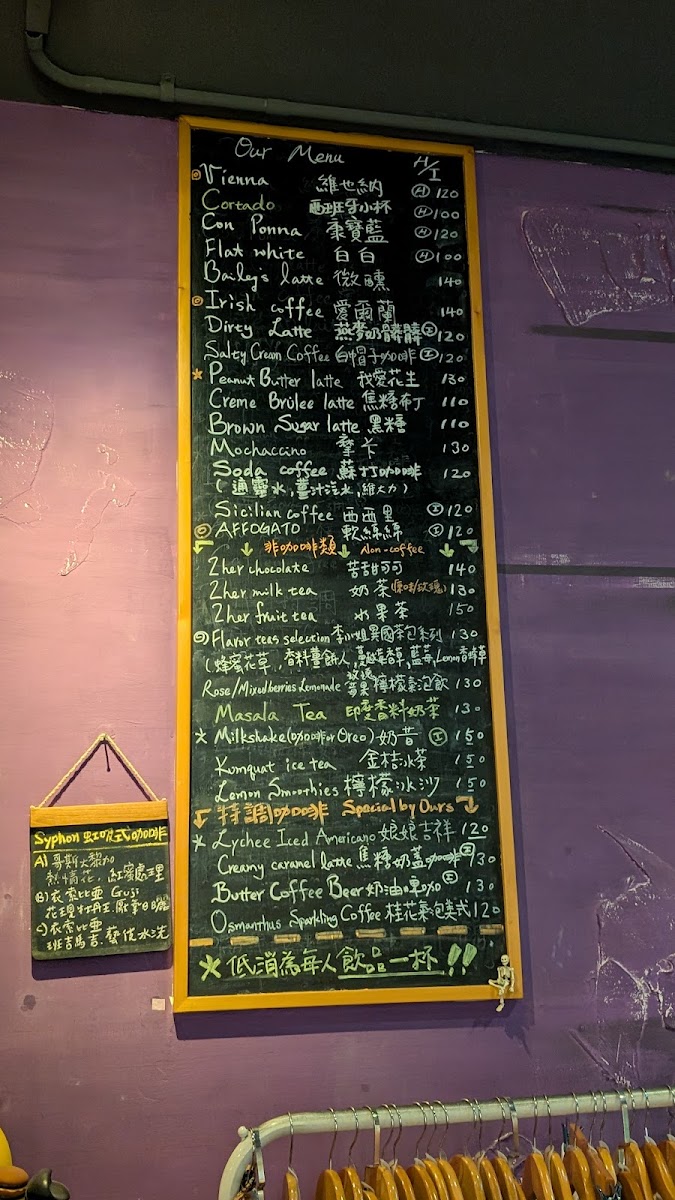 Our Menu H/I
Vienna 維也納 Ⓗ 120
Cortado 西班牙小杯 Ⓗ 100
Con Ponna 康寶藍 Ⓗ 120
Flat white 白白 Ⓗ 100
Bailey's latte 微醺 140
Irish coffee 愛爾蘭 140
Dirty Latte 燕麥奶髒髒 Ⓘ 120
Salty Cream Coffee 白帽子咖啡 Ⓘ 120
★ Peanut Butter latte 我愛花生 130
Creme Brûlee latte 焦糖布丁 110
Brown Sugar latte 黑糖 110
Mochaccino 摩卡 130
Soda coffee 蘇打咖啡 120
(通靈水,薑汁汽水,維大力)
Sicilian coffee 西西里 Ⓘ 120
AFFOGATO 軟綿綿 Ⓘ 120
非咖啡類 Non-coffee
2her chocolate 苦甜可可 140
2her milk tea 奶茶(原味/玫瑰) 130
2her fruit tea 水果茶 150
Flavor teas selection 李小姐異國茶包系列 130
(蜂蜜花草,香料薑餅人,蔓越莓香草,藍莓,Lemon香蜂草
Rose/Mixed berries Lemonade 玫瑰莓果檸檬氣泡飲 130
Masala Tea 印度香料奶茶 130
★ Milkshake(咖啡or Oreo)奶昔 Ⓘ 150
Komquat ice tea 金桔冰茶 150
Lemon Smoothies 檸檬冰沙 150
特調咖啡 Special by Ours
★ Lychee Iced Americano 娘娘吉祥 120
Creamy caramel latte 焦糖奶蓋咖啡 Ⓘ 130
Butter Coffee Beer 奶油啤咖 Ⓘ 130
Osmanthus Sparkling Coffee 桂花氣泡美式 120
★ 低消為每人飲品一杯!!
Syphon 虹吸式咖啡
A) 哥斯大黎加
熱情花,紅蜜處理
B) 衣索比亞 Guji
花現牡丹王.厭氧日曬
C) 衣索比亞
班吉馬吉.藝伎水洗